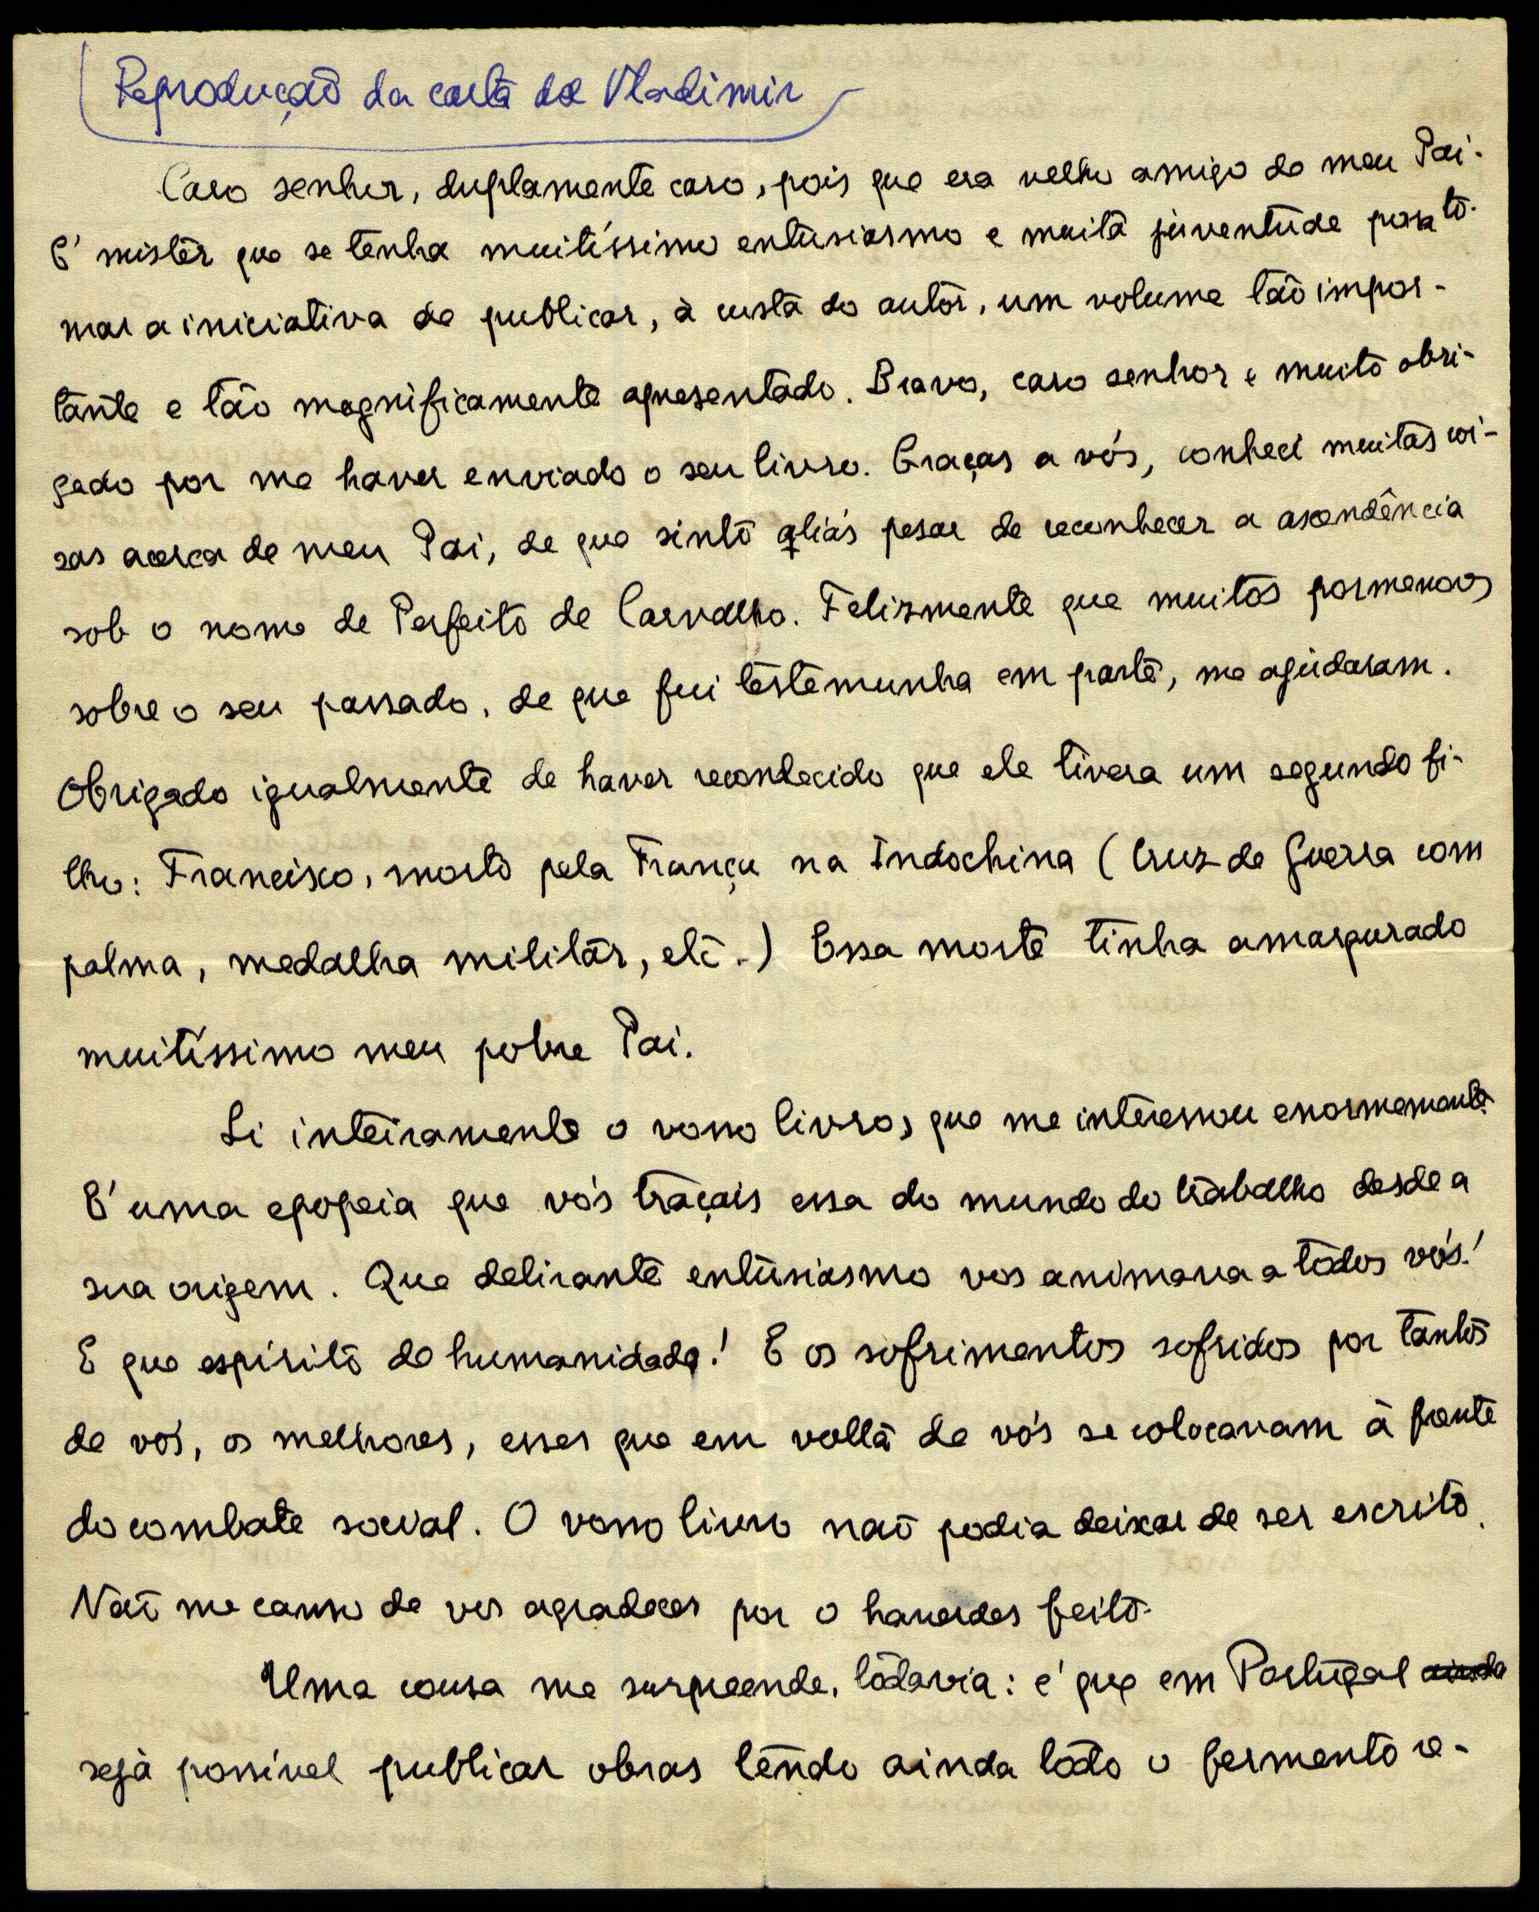 Reprodução da carta de Vladimir
Caro senhor, duplamente caro, pois que era velho amigo de meu Pai.
E' mistér que se tenha muitíssimo entusiasmo e muita juventude para to-
mar a iniciativa de publicar, à custa do autor, um volume tão impor-
tante e tão magnificamente apresentado. Bravo, caro senhor e muito obri-
gado por me haver enviado o seu livro. Graças a vós, conheci muitas coi-
sas acerca de meu Pai, de que sinto aliás pesar de reconhecer a ascendência
sob o nome de Perfeito de Carvalho. Felizmente que muitos pormenores
sobre o seu passado, de que fui testemunha em parte, me ajudaram.
Obrigado igualmente de haver reconhecido que ele tivera um segundo fi-
lho: Francisco, morto pela França na Indochina (Cruz de Guerra com
palma, medalha militar, etc.) Essa morte tinha amargurado
muitíssimo meu pobre Pai.
Li inteiramente o vosso livro, que me interessou enormemente.
E' uma epopeia que vós traçais essa do mundo do trabalho desde a
sua origem. Que delirante entusiasmo vos animava a todos vós!
E que espírito de humanidade! E os sofrimentos sofridos por tantos
de vós, os melhores, esses que em volta de vós se colocavam à frente
do combate social. O vosso livro não podia deixar de ser escrito.
Não me canso de vos agradecer por o haverdes feito.
Uma cousa me surpreende, todavia: é que em Portugal ainda
seja possível publicar obras tendo ainda todo o fermento re-